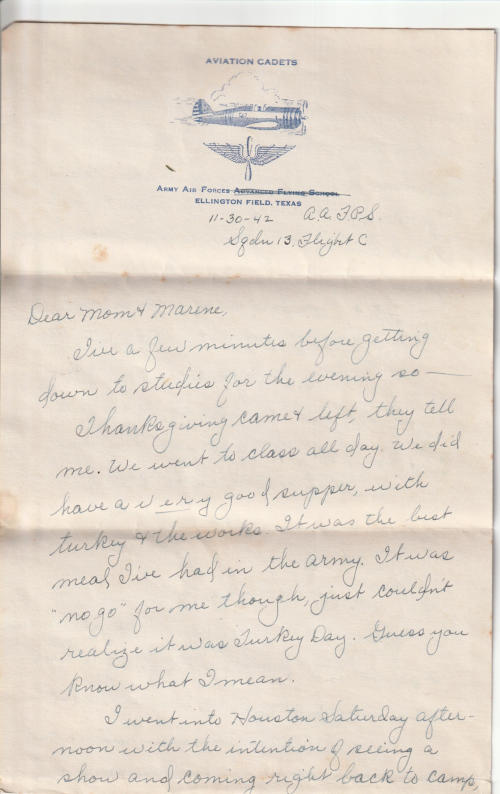 AVIATION CADETS
ARMY AIR FORCES ADVANCED FLYING SCHOOL
ELLINGTON FIELD, TEXAS
11-30-42 A.A.F.P.S.
Sqdn 13, Flight C
Dear Mom & Marene,
I've a few minutes before getting
down to studies for the evening so —
Thanksgiving came & left, they tell
me. We went to class all day. We did
have a very good supper, with
turkey & the works. It was the best
meal I've had in the army. It was
"no go" for me though, just couldn't
realize it was Turkey Day. Guess you
know what I mean.
I went into Houston Saturday after-
noon with the intention of seeing a
show and coming right back to camp,